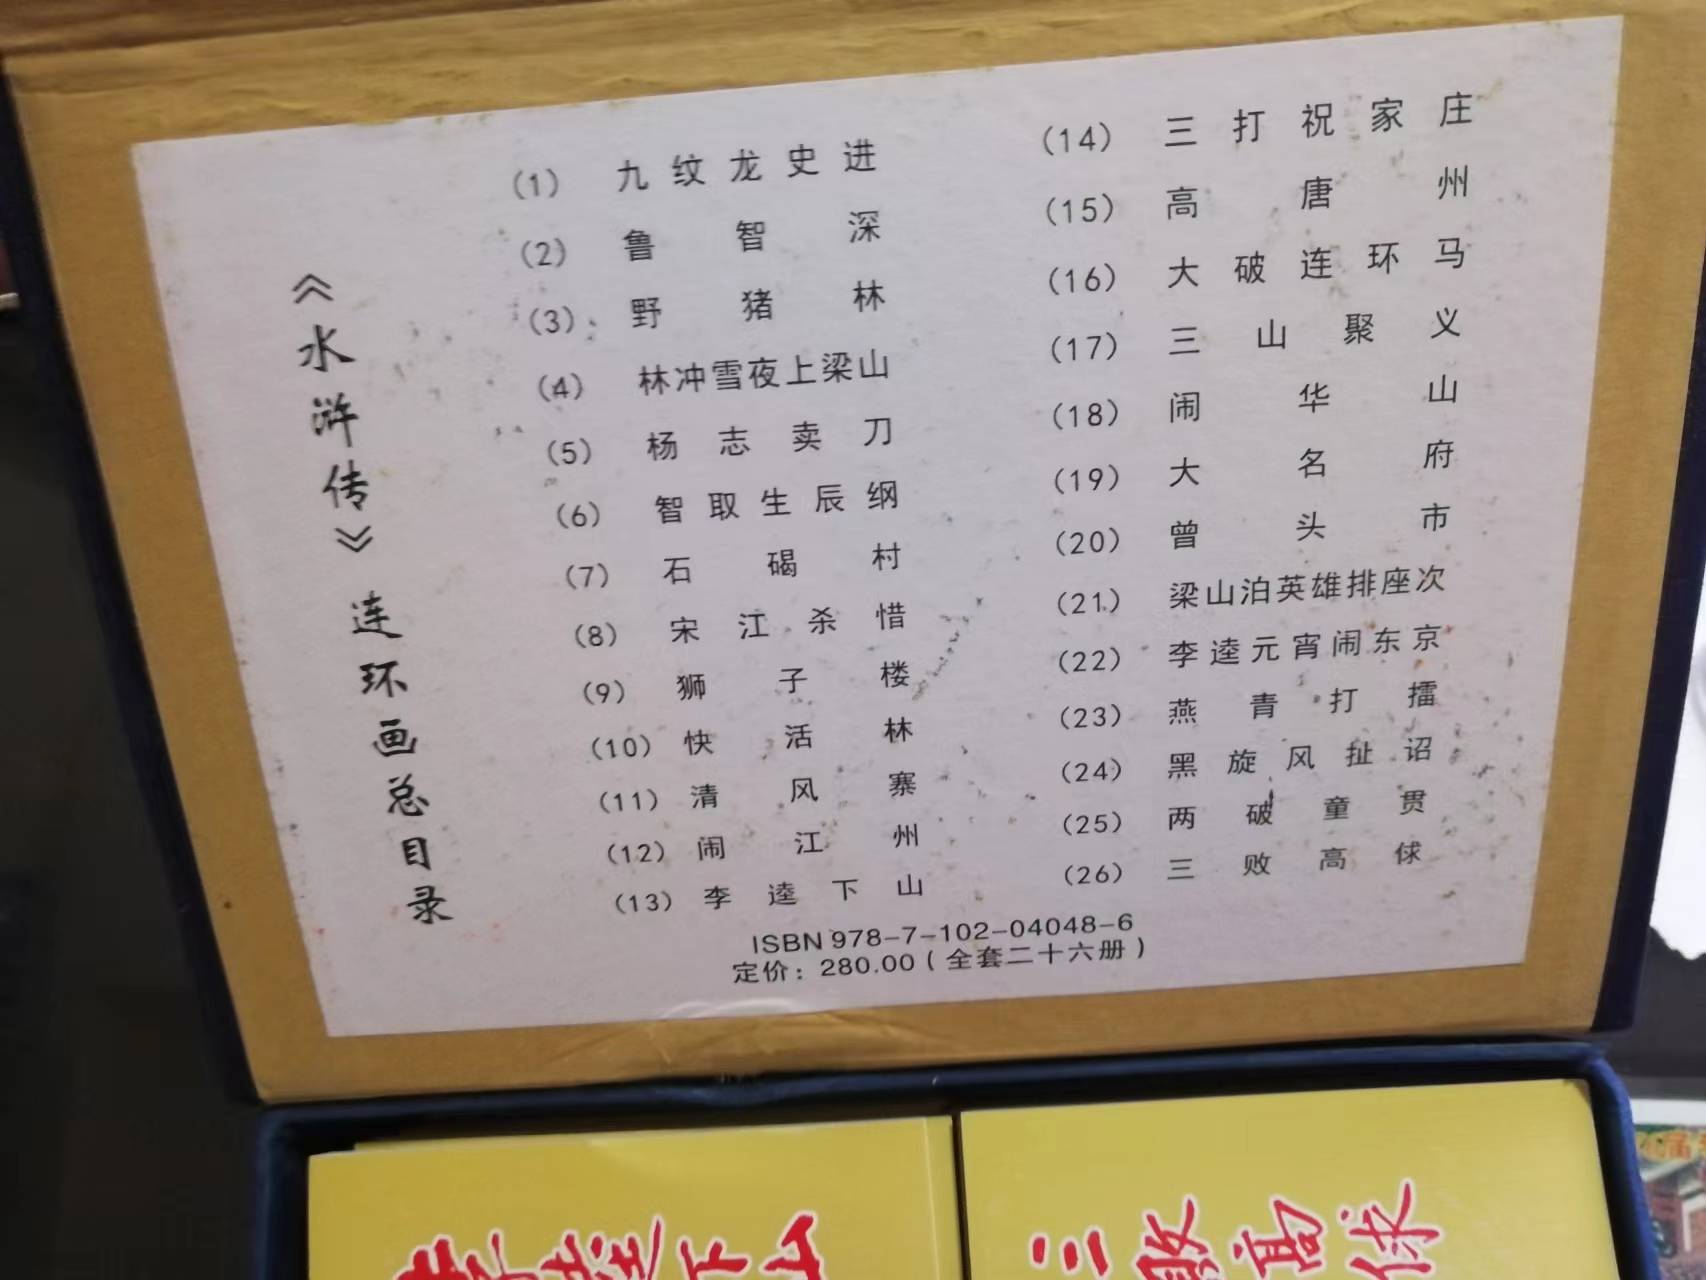 《水浒传》连环画总目录
(1) 九纹龙史进
(2) 鲁智深
(3) 野猪林
(4) 林冲雪夜上梁山
(5) 杨志卖刀
(6) 智取生辰纲
(7) 石碣村
(8) 宋江杀惜
(9) 狮子楼
(10) 快活林
(11) 清风寨
(12) 闹江州
(13) 李逵下山
(14) 三打祝家庄
(15) 高唐州
(16) 大破连环马
(17) 三山聚义
(18) 闹华山
(19) 大名府
(20) 曾头市
(21) 梁山泊英雄排座次
(22) 李逵元宵闹东京
(23) 燕青打擂
(24) 黑旋风扯诏
(25) 两破童贯
(26) 三败高俅
ISBN 978-7-102-04048-6
定价：280.00（全套二十六册）
李逵下山
三败高俅